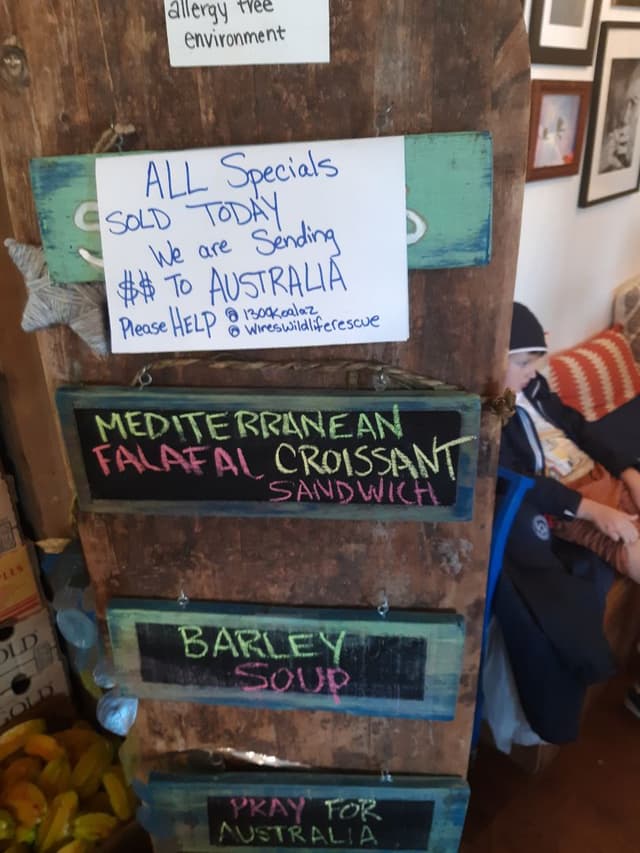 allergy free
environment
ALL Specials
SOLD TODAY
We are Sending
$$ To AUSTRALIA
Please HELP @ 1300Koalaz
@ Wireswildliferescue
MEDITERRANEAN
FALAFAL CROISSANT
SANDWICH
BARLEY
SOUP
PRAY FOR
AUSTRALIA
OLD
GOLD